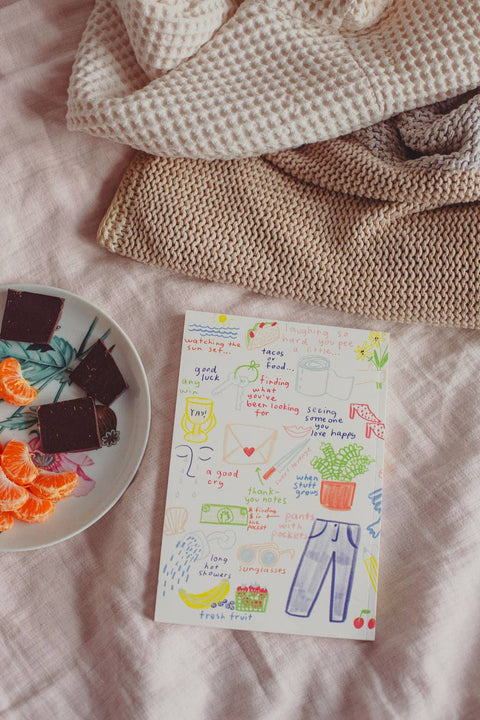 watching the
sun set...
laughing so
hard you pee
a little...
tacos
or
food...
good
luck
any
win
YAY!
finding
what
you've
been looking
for
seeing
someone
you
love happy
a good
cry
sweet revenge
when
stuff
grows
thank-
you notes
& finding
$ in
the
pocket
pants
with
pockets
long
hot
showers
sunglasses
fresh fruit